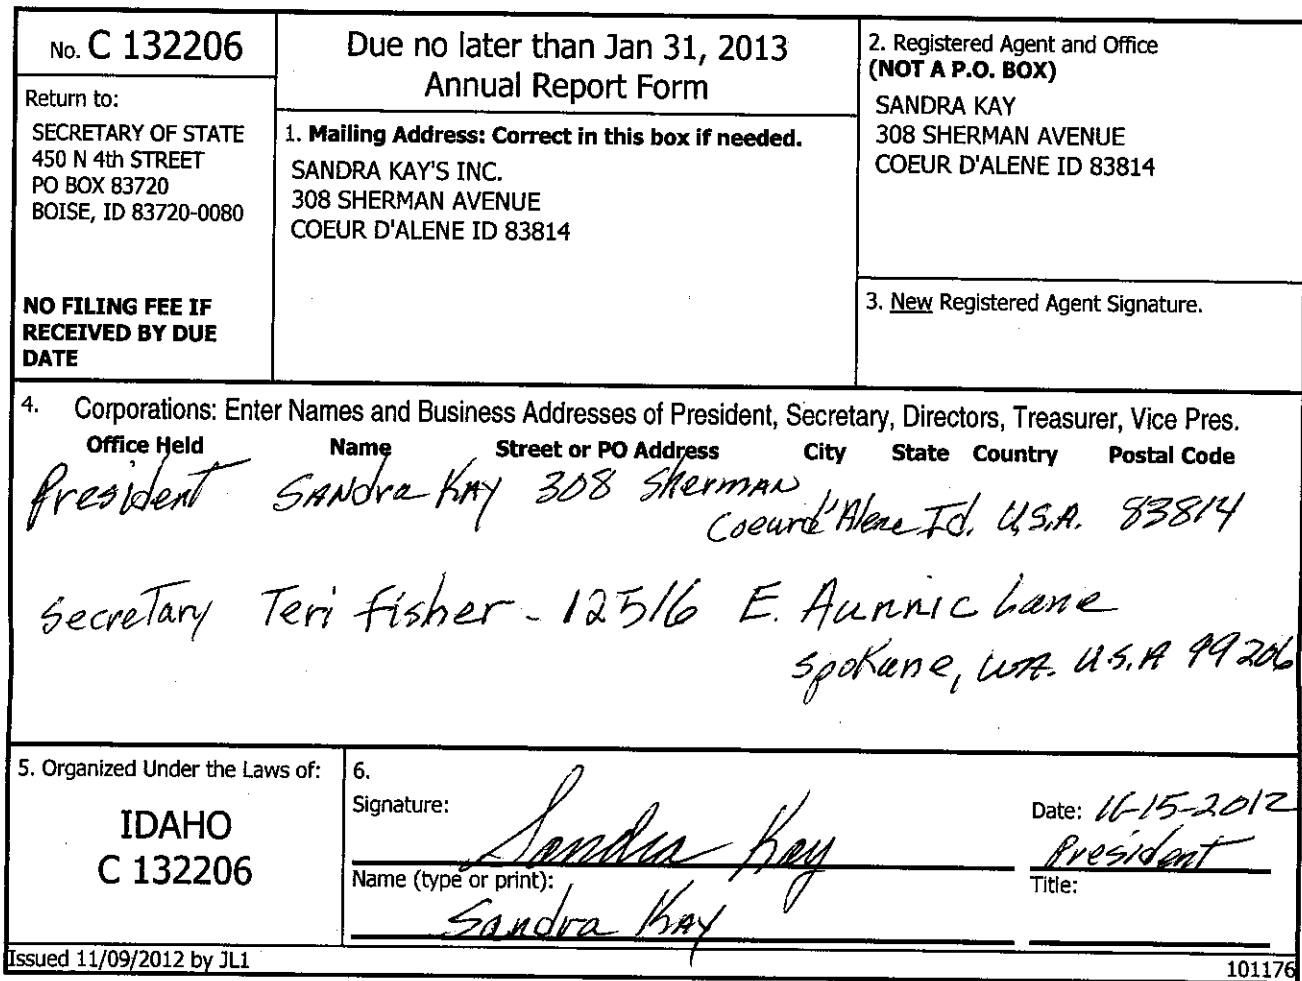 No. C 132206
Return to:
SECRETARY OF STATE
450 N 4th STREET
PO BOX 83720
BOISE, ID 83720-0080
NO FILING FEE IF
RECEIVED BY DUE
DATE
Due no later than Jan 31, 2013
Annual Report Form
1. Mailing Address: Correct in this box if needed.
SANDRA KAY'S INC.
308 SHERMAN AVENUE
COEUR D'ALENE ID 83814
2. Registered Agent and Office
(NOT A P.O. BOX)
SANDRA KAY
308 SHERMAN AVENUE
COEUR D'ALENE ID 83814
3. New Registered Agent Signature.
4. Corporations: Enter Names and Business Addresses of President, Secretary, Directors, Treasurer, Vice Pres.
Office Held Name Street or PO Address City State Country Postal Code
President SANdra KAY 308 Sherman
Coeurd'Alene Id. U.S.A. 83814
Secretary Teri Fisher - 12516 E. Lane
Spokane, WA. U.S.A 99206
5. Organized Under the Laws of:
IDAHO
C 132206
6.
Signature: Sandra Kay
Date: 11-15-2012
President
Name (type or print):
Title:
Sandra KAY
Issued 11/09/2012 by JL1
101176